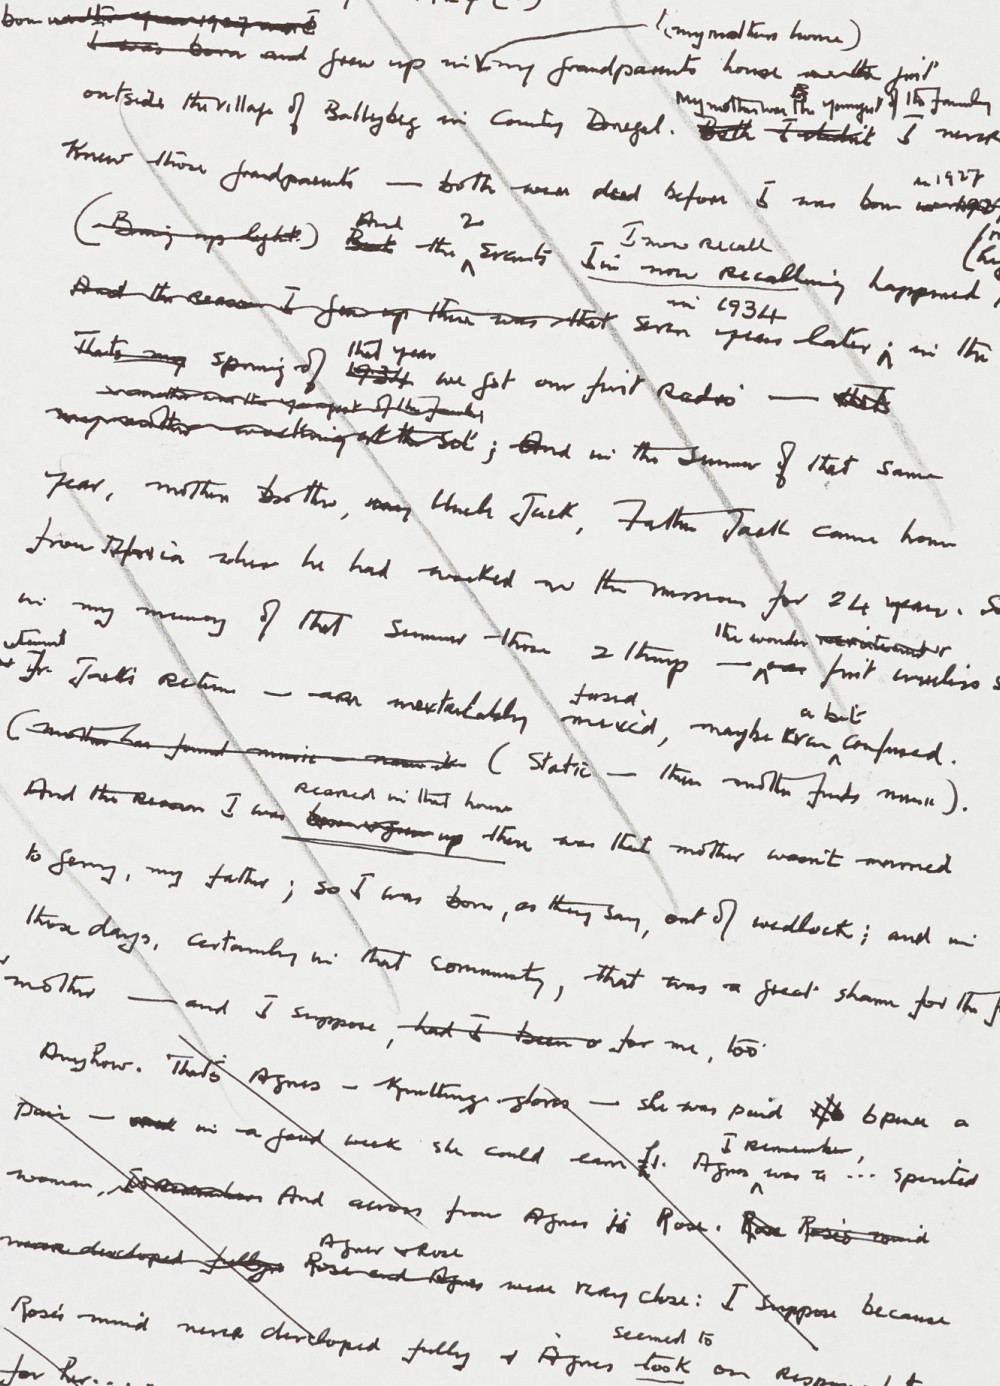 (my mother's home)
I was born and grew up in my grandparents house just
my mother was the youngest of the family
outside the village of Ballybeg in County Donegal. Both I I never
in 1927
knew those grandparents — both were dead before I was born
And 2 I now recall
But the events I'm now Recalling happened
in 1934
And the reason I grew up there was that seven years later; in the
that year
spring of 1934 we got our first Radio —
; And in the Summer of that same
year, mother brother, my Uncle Jack, Father Jack came home
from Africa where he had worked on the missions for 24 years. So
in my memory of that Summer those 2 things — the wonder first wireless
+ Fr. Jack's return — are inextricably mixed, maybe even confused.
fused a bit
(mother has found music — (Static — then mother finds music).
reared in that house
And the reason I was up there was that mother wasn't married
to Gerry, my father; so I was born, as they say, out of wedlock; and in
those days, certainly in that community, that was a great shame for the
mother — and I suppose, had I been for me, too
Anyhow. That's Agnes — Knitting gloves — she was paid 6 pence a
pair — in a good week she could earn £1. Agnes was a ... spirited
I remember,
woman, And across from Agnes is Rose. Rose Rose's mind
Agnes + Rose
never developed fully Rose and Agnes were very close: I suppose because
Rose's mind never developed fully & Agnes took on
seemed to
for her....